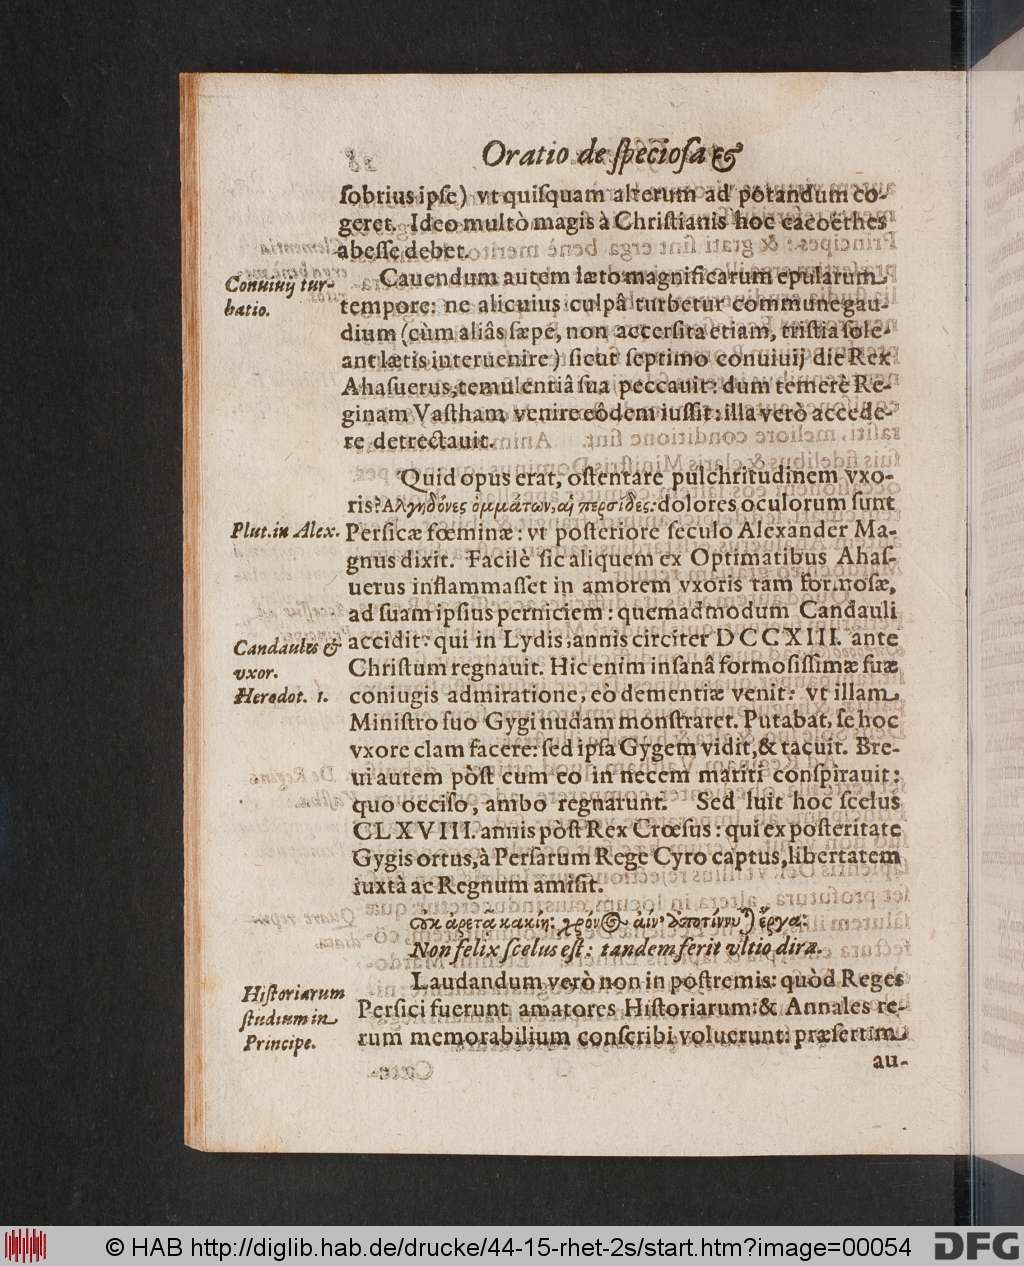 Oratio de ſpecioſa &
ſobrius ipſe) vt quiſquam alterum ad potandum co-
geret. Ideo multò magis à Chriſtianis hoc cacoëthes
abeſſe debet.
Conuiuij tur-
batio.
Cauendum autem læto magnificarum epularum
tempore: ne alicuius culpâ turbetur commune gau-
dium (cùm aliâs ſæpe, non accerſita etiam, triſtia ſole-
ant lætis interuenire) ſicut ſeptimo conuiuij die Rex
Ahaſuerus, temulentiâ ſua peccauit: dum temerè Re-
ginam Vaſtham venire eôdem iuſſit: illa verò accede-
re detrectauit.
Quid opus erat, oſtentare pulchritudinem vxo-
ris? Αλγηδόνες ὀμμάτων, αἱ περσίδες: dolores oculorum ſunt
Plut. in Alex.
Perſicæ fœminæ: vt poſteriore ſeculo Alexander Ma-
gnus dixit. Facilè ſic aliquem ex Optimatibus Ahaſ-
uerus inflammaſſet in amorem vxoris tam formoſæ,
ad ſuam ipſius perniciem: quemadmodum Candauli
Candaulis &
vxor.
Herodot. 1.
accidit: qui in Lydis, annis circiter DCCXIII. ante
Chriſtum regnauit. Hic enim inſanâ formoſiſſimæ ſuæ
coniugis admiratione, eò dementiæ venit: vt illam
Miniſtro ſuo Gygi nudam monſtraret. Putabat, ſe hoc
vxore clam facere: ſed ipſa Gygem vidit, & tacuit. Bre-
ui autem pòſt cum eo in necem mariti conſpirauit:
quo occiſo, ambo regnarunt. Sed luit hoc ſcelus
CLXVIII. annis pòſt Rex Crœſus: qui ex poſteritate
Gygis ortus, à Perſarum Rege Cyro captus, libertatem
iuxtà ac Regnum amiſit.
Οὐκ ἀρετᾷ κακίη: χρόνος αἰὲν ἀποτίννυται ἔργα:
Non felix ſcelus eſt: tandem ferit vltio diræ.
Hiſtoriarum
ſtudium in
Principe.
Laudandum verò non in poſtremis: quòd Reges
Perſici fuerunt amatores Hiſtoriarum: & Annales re-
rum memorabilium conſcribi voluerunt: præſertim
au-
© HAB http://diglib.hab.de/drucke/44-15-rhet-2s/start.htm?image=00054
DFG